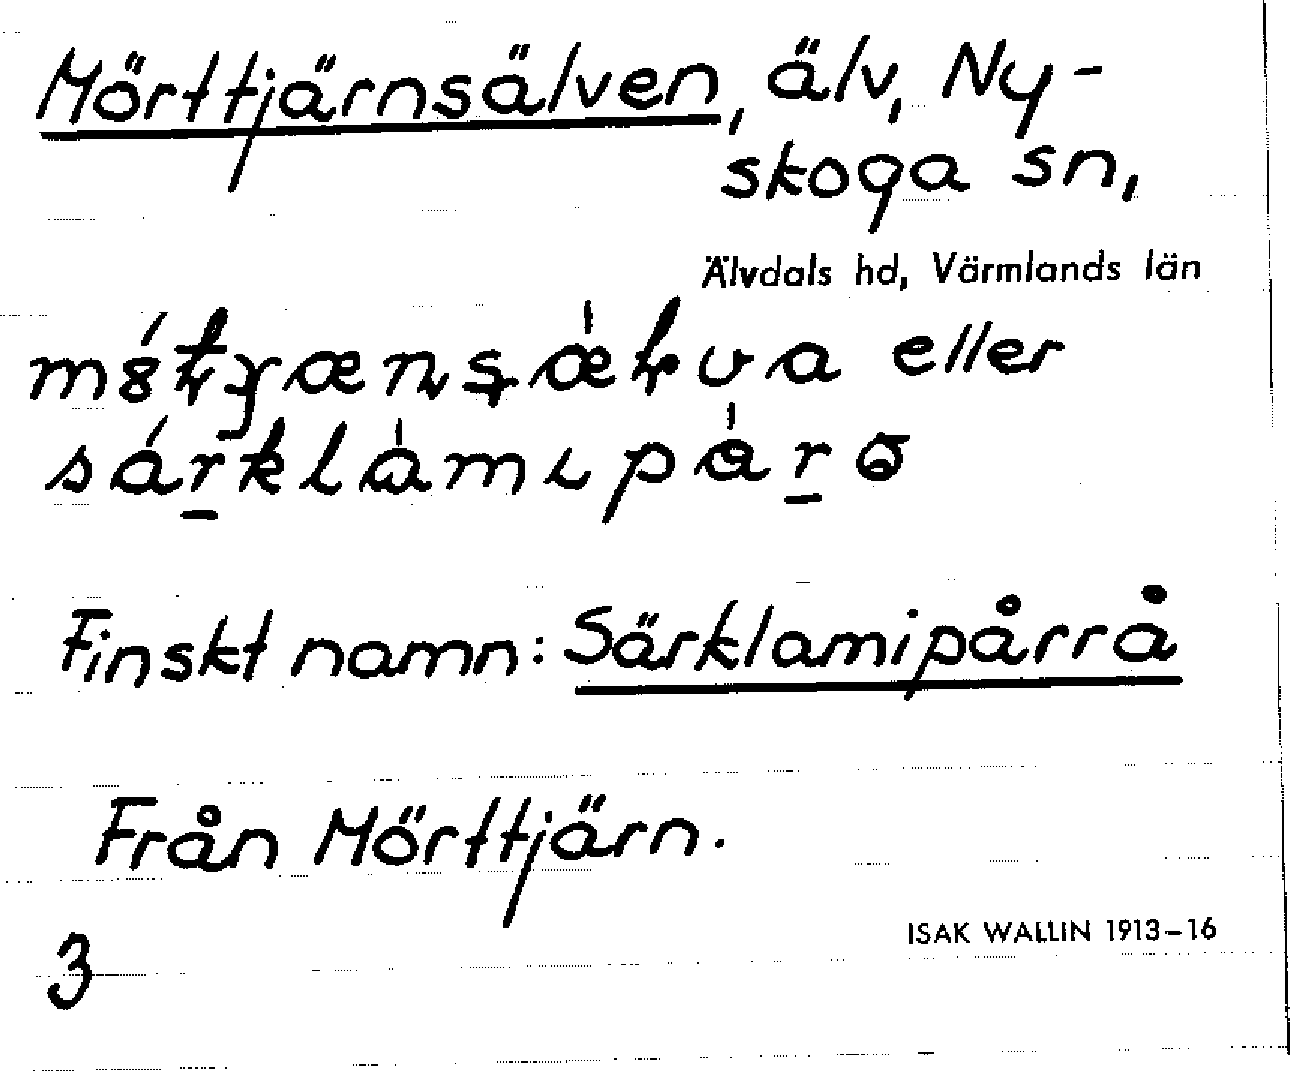 Mörttjärnsälven, älv, Ny-
skoga sn,
Älvdals hd, Värmlands län
eller
Finskt namn: Särklamipårrå
Från Mörttjärn.
ISAK WALLIN 1913-16
3